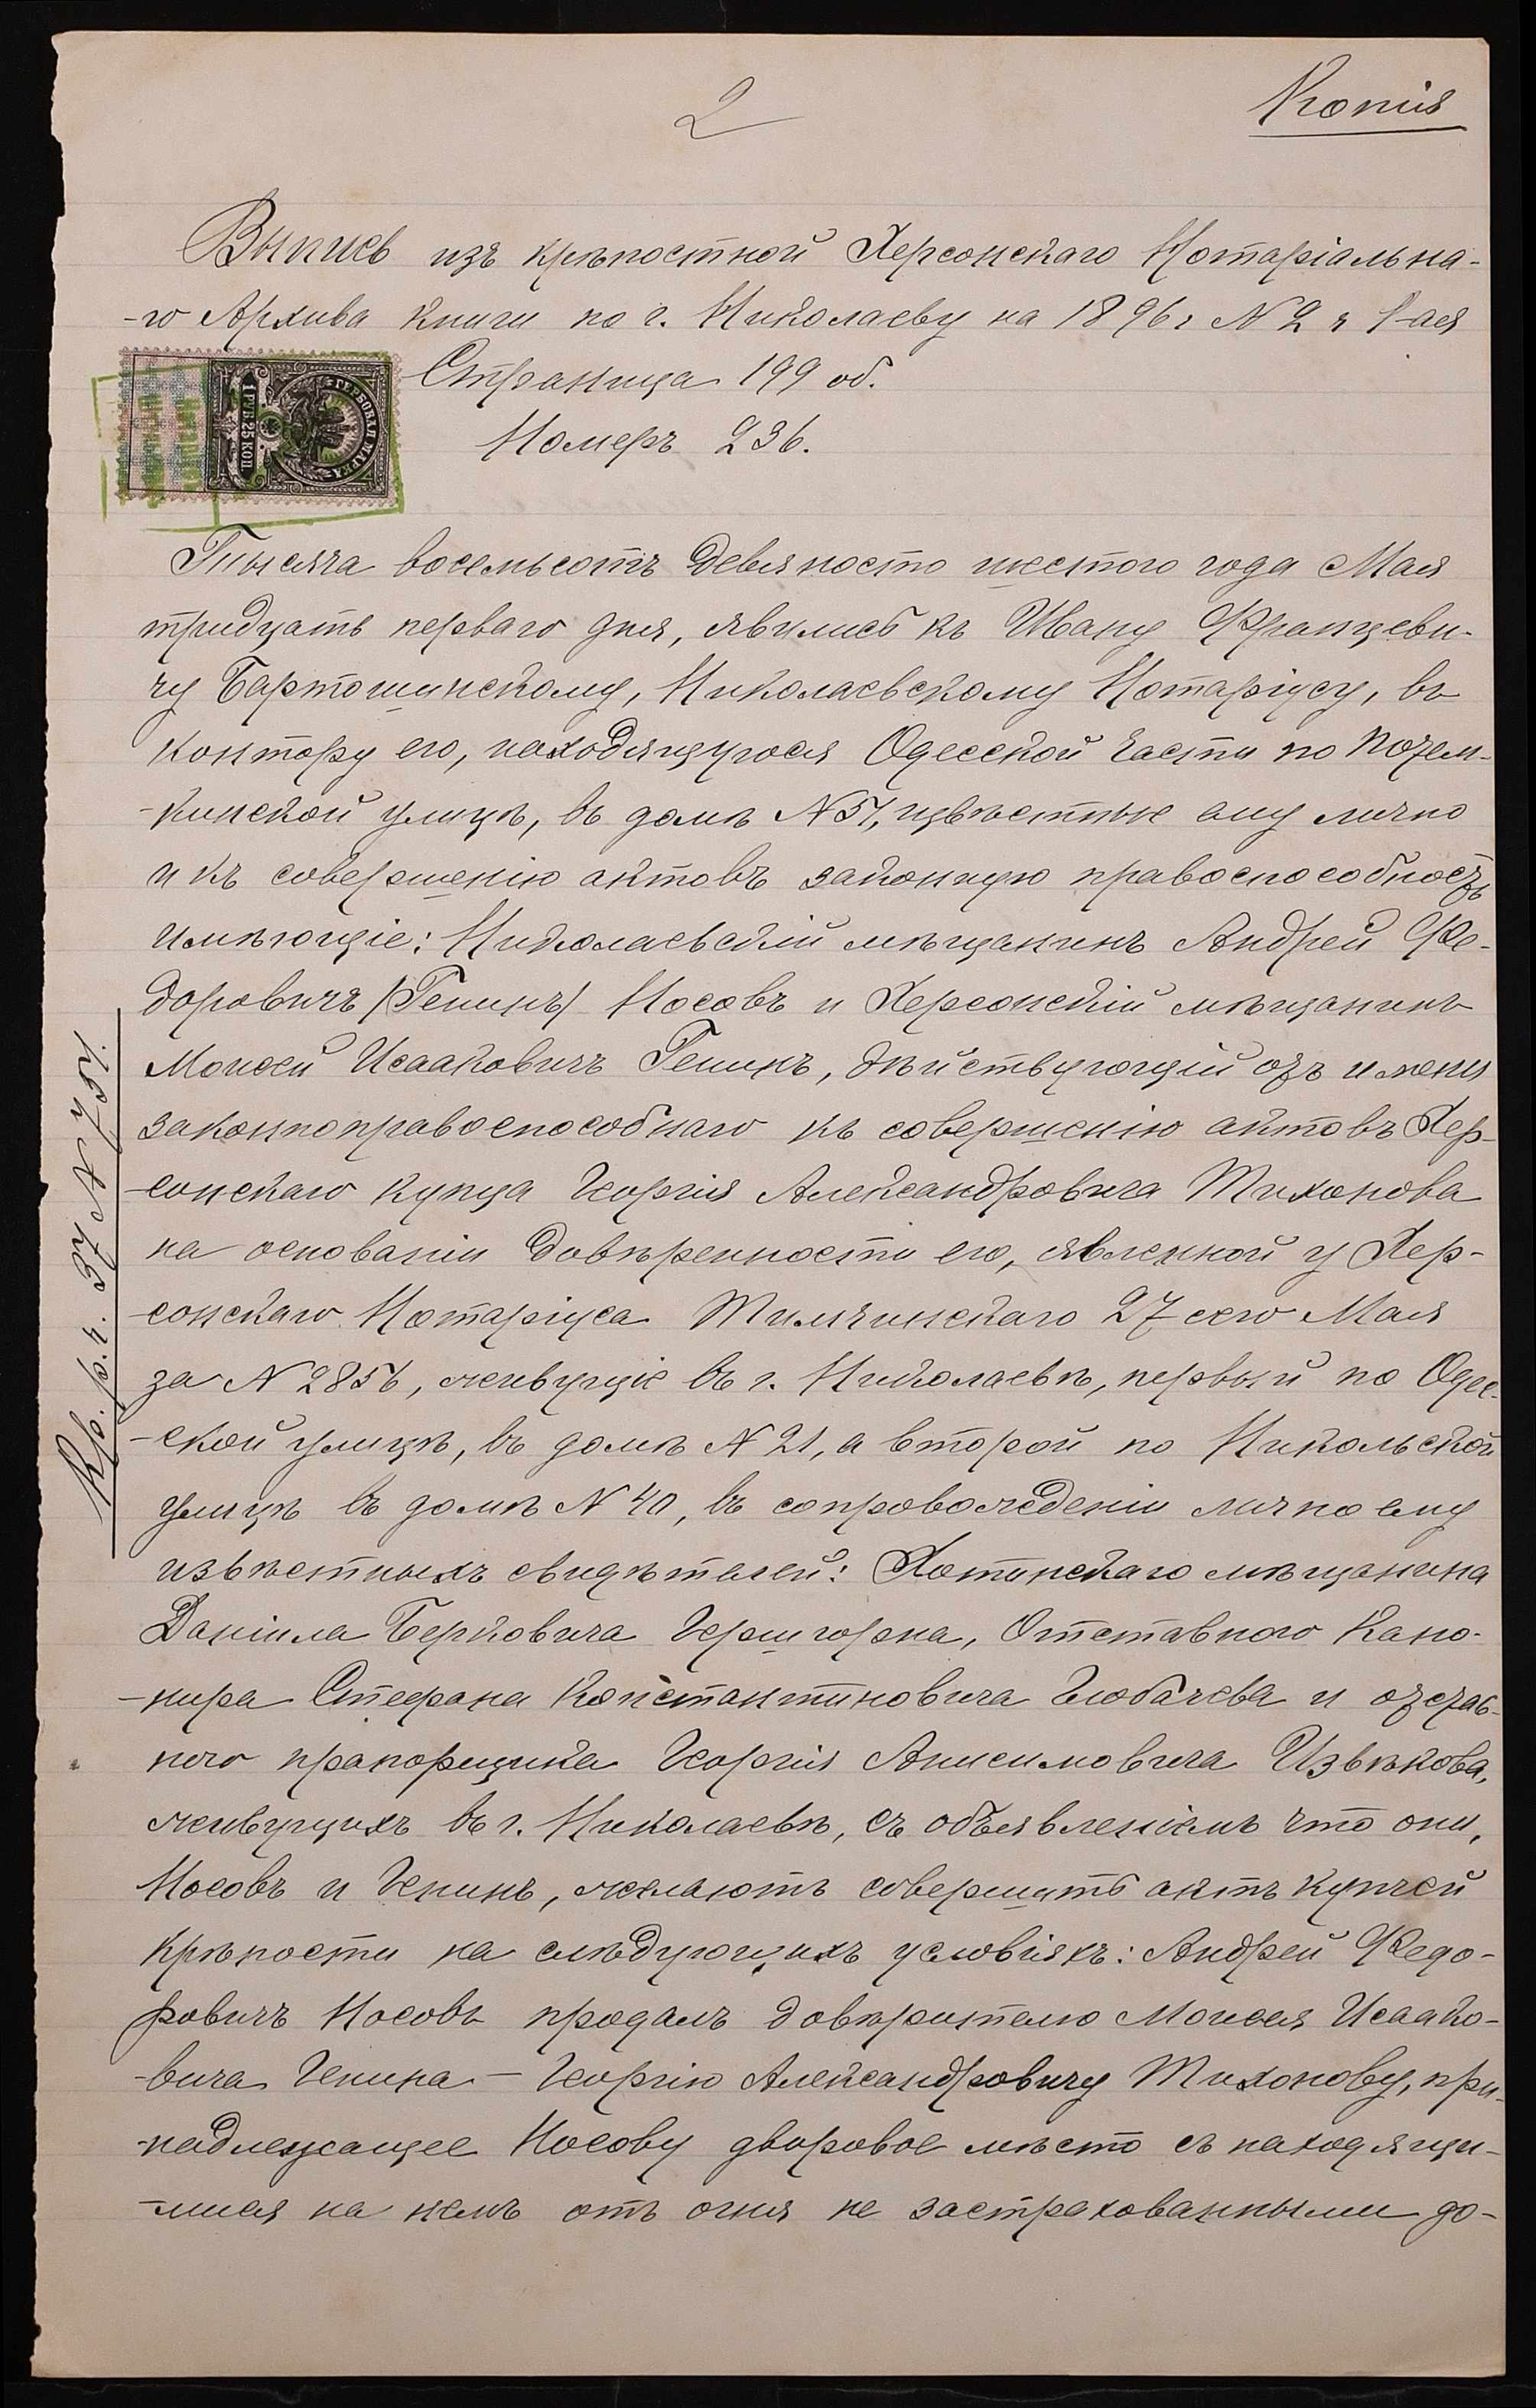 2
Копія
Выпись изъ крѣпостной Херсонскаго Нотаріальна-
-го Архива книги по г. Николаеву на 1896 г N 2 ч 1-ая
Страница 199 об.
Номеръ 236.
ГЕРБОВАЯ МАРКА
1 РУБ. 25 КОП
Тысяча восемьсотъ девяносто шестого года Мая
тридцать перваго дня, явились къ Ивану Францеви-
чу Бартошинскому, Николаевскому Нотаріусу, въ
контору его, находящуюся Одесской части по Потем-
-кинской улицѣ, въ домѣ N 57, извѣстные ему лично
и къ совершенію актовъ законную правоспособность
имѣющіе: Николаевскій мѣщанинъ Андрей Фе-
доровичъ /Генинъ/ Носовъ и Херсонскій мѣщанинъ
Моисей Исааковичъ Генинъ, дѣйствующій отъ имени
законноправоспособнаго къ совершенію актовъ Хер-
-сонскаго купца Георгія Александровича Тихонова
на основаніи довѣренности его, явленной у Хер-
-сонскаго Нотаріуса 27 сего Мая
за N 2856, живущіе въ г. Николаевѣ, первый по Одес-
-ской улицѣ, въ домѣ N 21, а второй по Никольской
улицѣ въ домѣ N 40, въ сопровожденіи лично ему
извѣстныхъ свидѣтелей: Хотинскаго мѣщанина
Даніила Берковича Герш­горна, Отставного Кано-
-нира Стефана Константиновича Глобачева и отстав-
ного прапорщика Георгія Анисимовича Извѣкова,
живущихъ въ г. Николаевѣ, съ объявленіемъ что они,
Носовъ и Генинъ, желаютъ совершить актъ купчей
крѣпости на слѣдующихъ условіяхъ: Андрей Федо-
ровичъ Носовъ продалъ довѣрителю Моисея Исаако-
-вича Генина - Георгію Александровичу Тихонову, при-
-надлежащее Носову дворовое мѣсто съ находящи-
-мися на немъ отъ огня не застрахованными до-
Кв. р. г. 37 N 757.